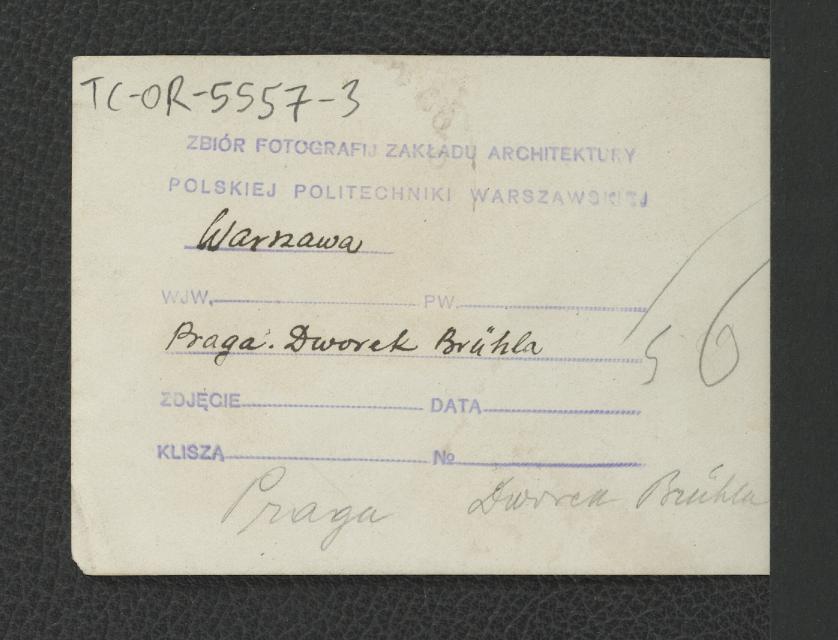 TC-OR-5557-3
ZBIÓR FOTOGRAFIJ ZAKŁADU ARCHITEKTURY
POLSKIEJ POLITECHNIKI WARSZAWSKIEJ
Warszawa
WJW. PW.
Praga. Dworek Brühla
56
ZDJĘCIE DATA
KLISZA №
Praga Dworek Brühla